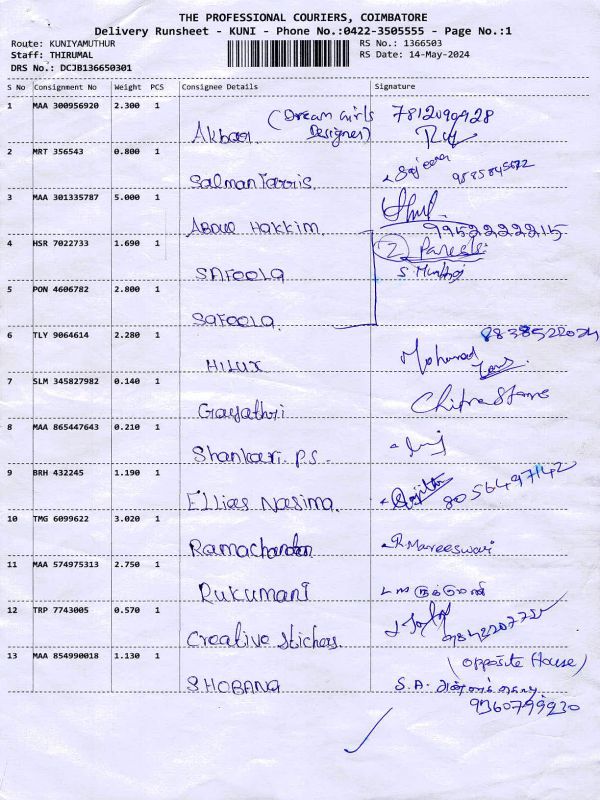 THE PROFESSIONAL COURIERS, COIMBATORE
Delivery Runsheet - KUNI - Phone No.:0422-3505555 - Page No.:1
Route: KUNIYAMUTHUR RS No.: 1366503
Staff: THIRUMAL RS Date: 14-May-2024
DRS No.: DCJB136650301
S No Consignment No Weight PCS Consignee Details Signature
1 MAA 300956920 2.300 1 Akbar (Dream Girls Designer) 7812090928
2 MRT 356543 0.800 1 Salman Farris Sajeera
3 MAA 301335787 5.000 1 Abdul Hakkim 9952222215
4 HSR 7022733 1.690 1 SAFOOLA (2) Parcels
5 PON 4606782 2.800 1 SAFOOLA
6 TLY 9064614 2.280 1 HILUX Mohamad
7 SLM 345827982 0.140 1 Gayathri Chitra Stores
8 MAA 865447643 0.210 1 Shankari. P.S.
9 BRH 432245 1.190 1 Ellias Nasima 8056497142
10 TMG 6099622 3.020 1 Ramachandran R. Mareeswari
11 MAA 574975313 2.750 1 Rukumani
12 TRP 7743005 0.570 1 Creative Stickers
13 MAA 854990018 1.130 1 SHOBANA (opposite House)
S.A.
9360799230